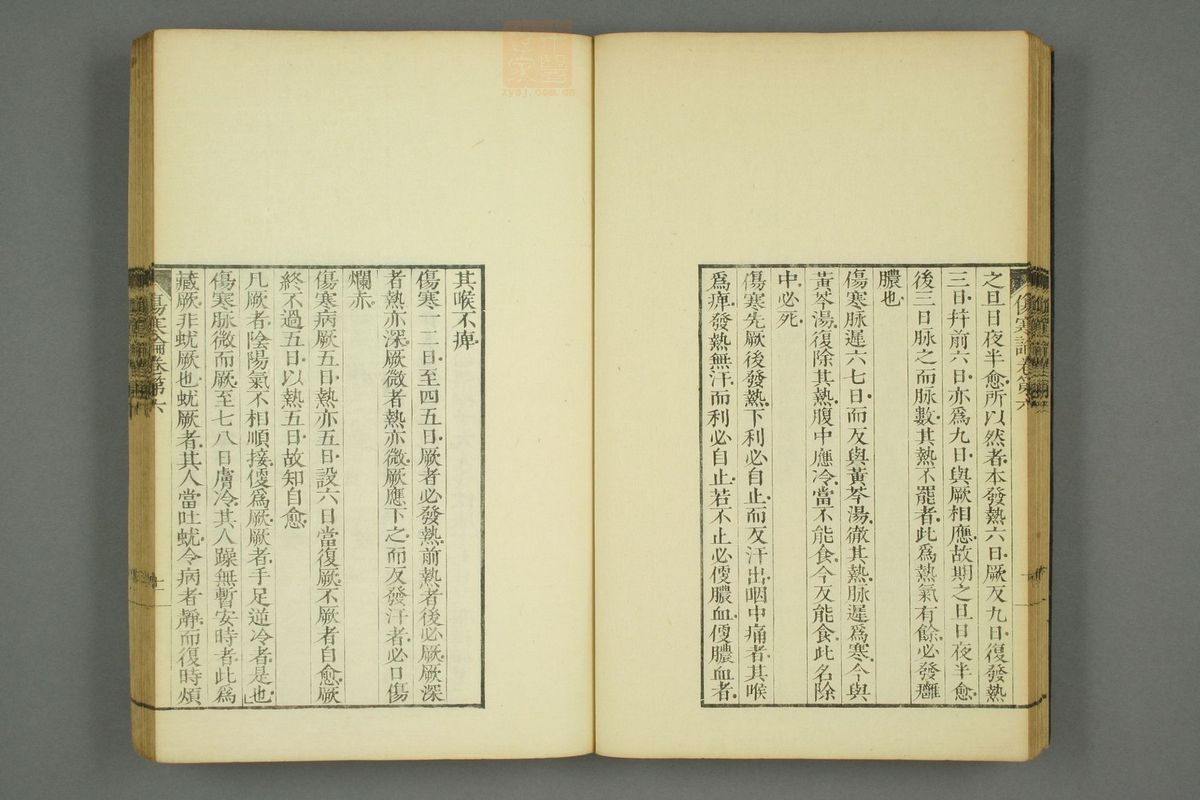 之旦日夜半愈所以然者本發熱六日厥反九日復發熱
三日幷前六日亦爲九日與厥相應故期之旦日夜半愈
後三日脉之而脉數其熱不罷者此爲熱氣有餘必發癰
膿也
傷寒脉遲六七日而反與黃芩湯徹其熱脉遲爲寒今與
黃芩湯復除其熱腹中應冷當不能食今反能食此名除
中必死
傷寒先厥後發熱下利必自止而反汗出咽中痛者其喉
爲痺發熱無汗而利必自止若不止必便膿血便膿血者
其喉不痺
傷寒一二日至四五日厥者必發熱前熱者後必厥厥深
者熱亦深厥微者熱亦微厥應下之而反發汗者必口傷
爛赤
傷寒病厥五日熱亦五日設六日當復厥不厥者自愈厥
終不過五日以熱五日故知自愈
凡厥者陰陽氣不相順接便爲厥厥者手足逆冷者是也
傷寒脉微而厥至七八日膚冷其人躁無暫安時者此爲
藏厥非蚘厥也蚘厥者其人當吐蚘令病者靜而復時煩
傷寒論卷第六
傷寒論卷第六
zysj.com.cn